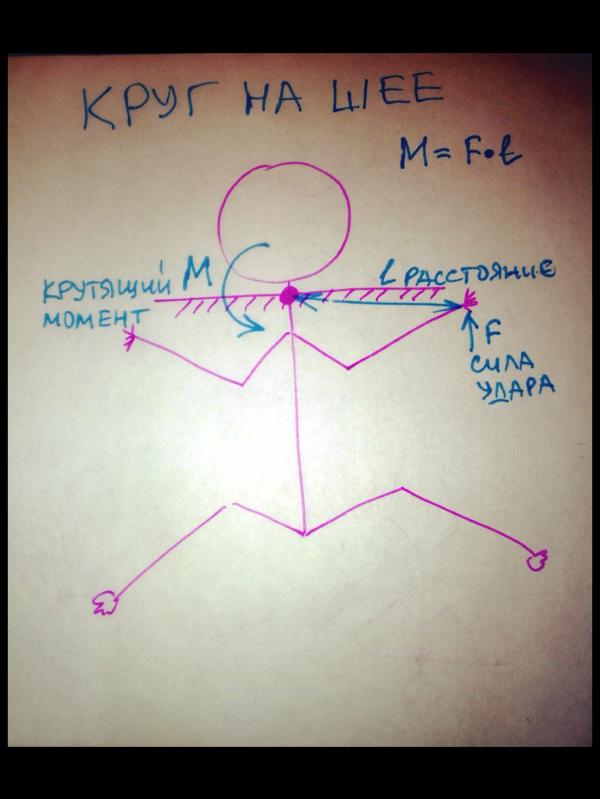 КРУГ НА ШЕЕ
M = F•l
КРУТЯЩИЙ
МОМЕНТ
M
L РАССТОЯНИЕ
F
СИЛА
УДАРА